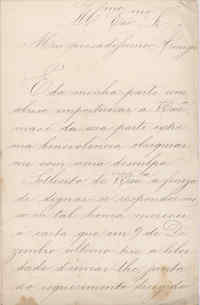 Illmo Exmo Sr.
Meu presadissimo Amigo
É da minha parte um
abuso importunar a V. Exa
mas é da sua parte extre
ma benevolencia obsequiar
me com uma desculpa.
Sollicito de V. Exa a fineza
de dignar-se responder-me
se tal honra mereceu
a carta que em 9 de De
zembro ultimo tive a liber
dade d'enviar-lhe junta
do requerimento dirigido